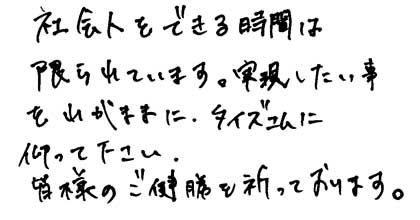 社会人をできる時間は
限られています。実現したい事
をわがままに、タイズムに
仰って下さい。
皆様のご健勝を祈っております。